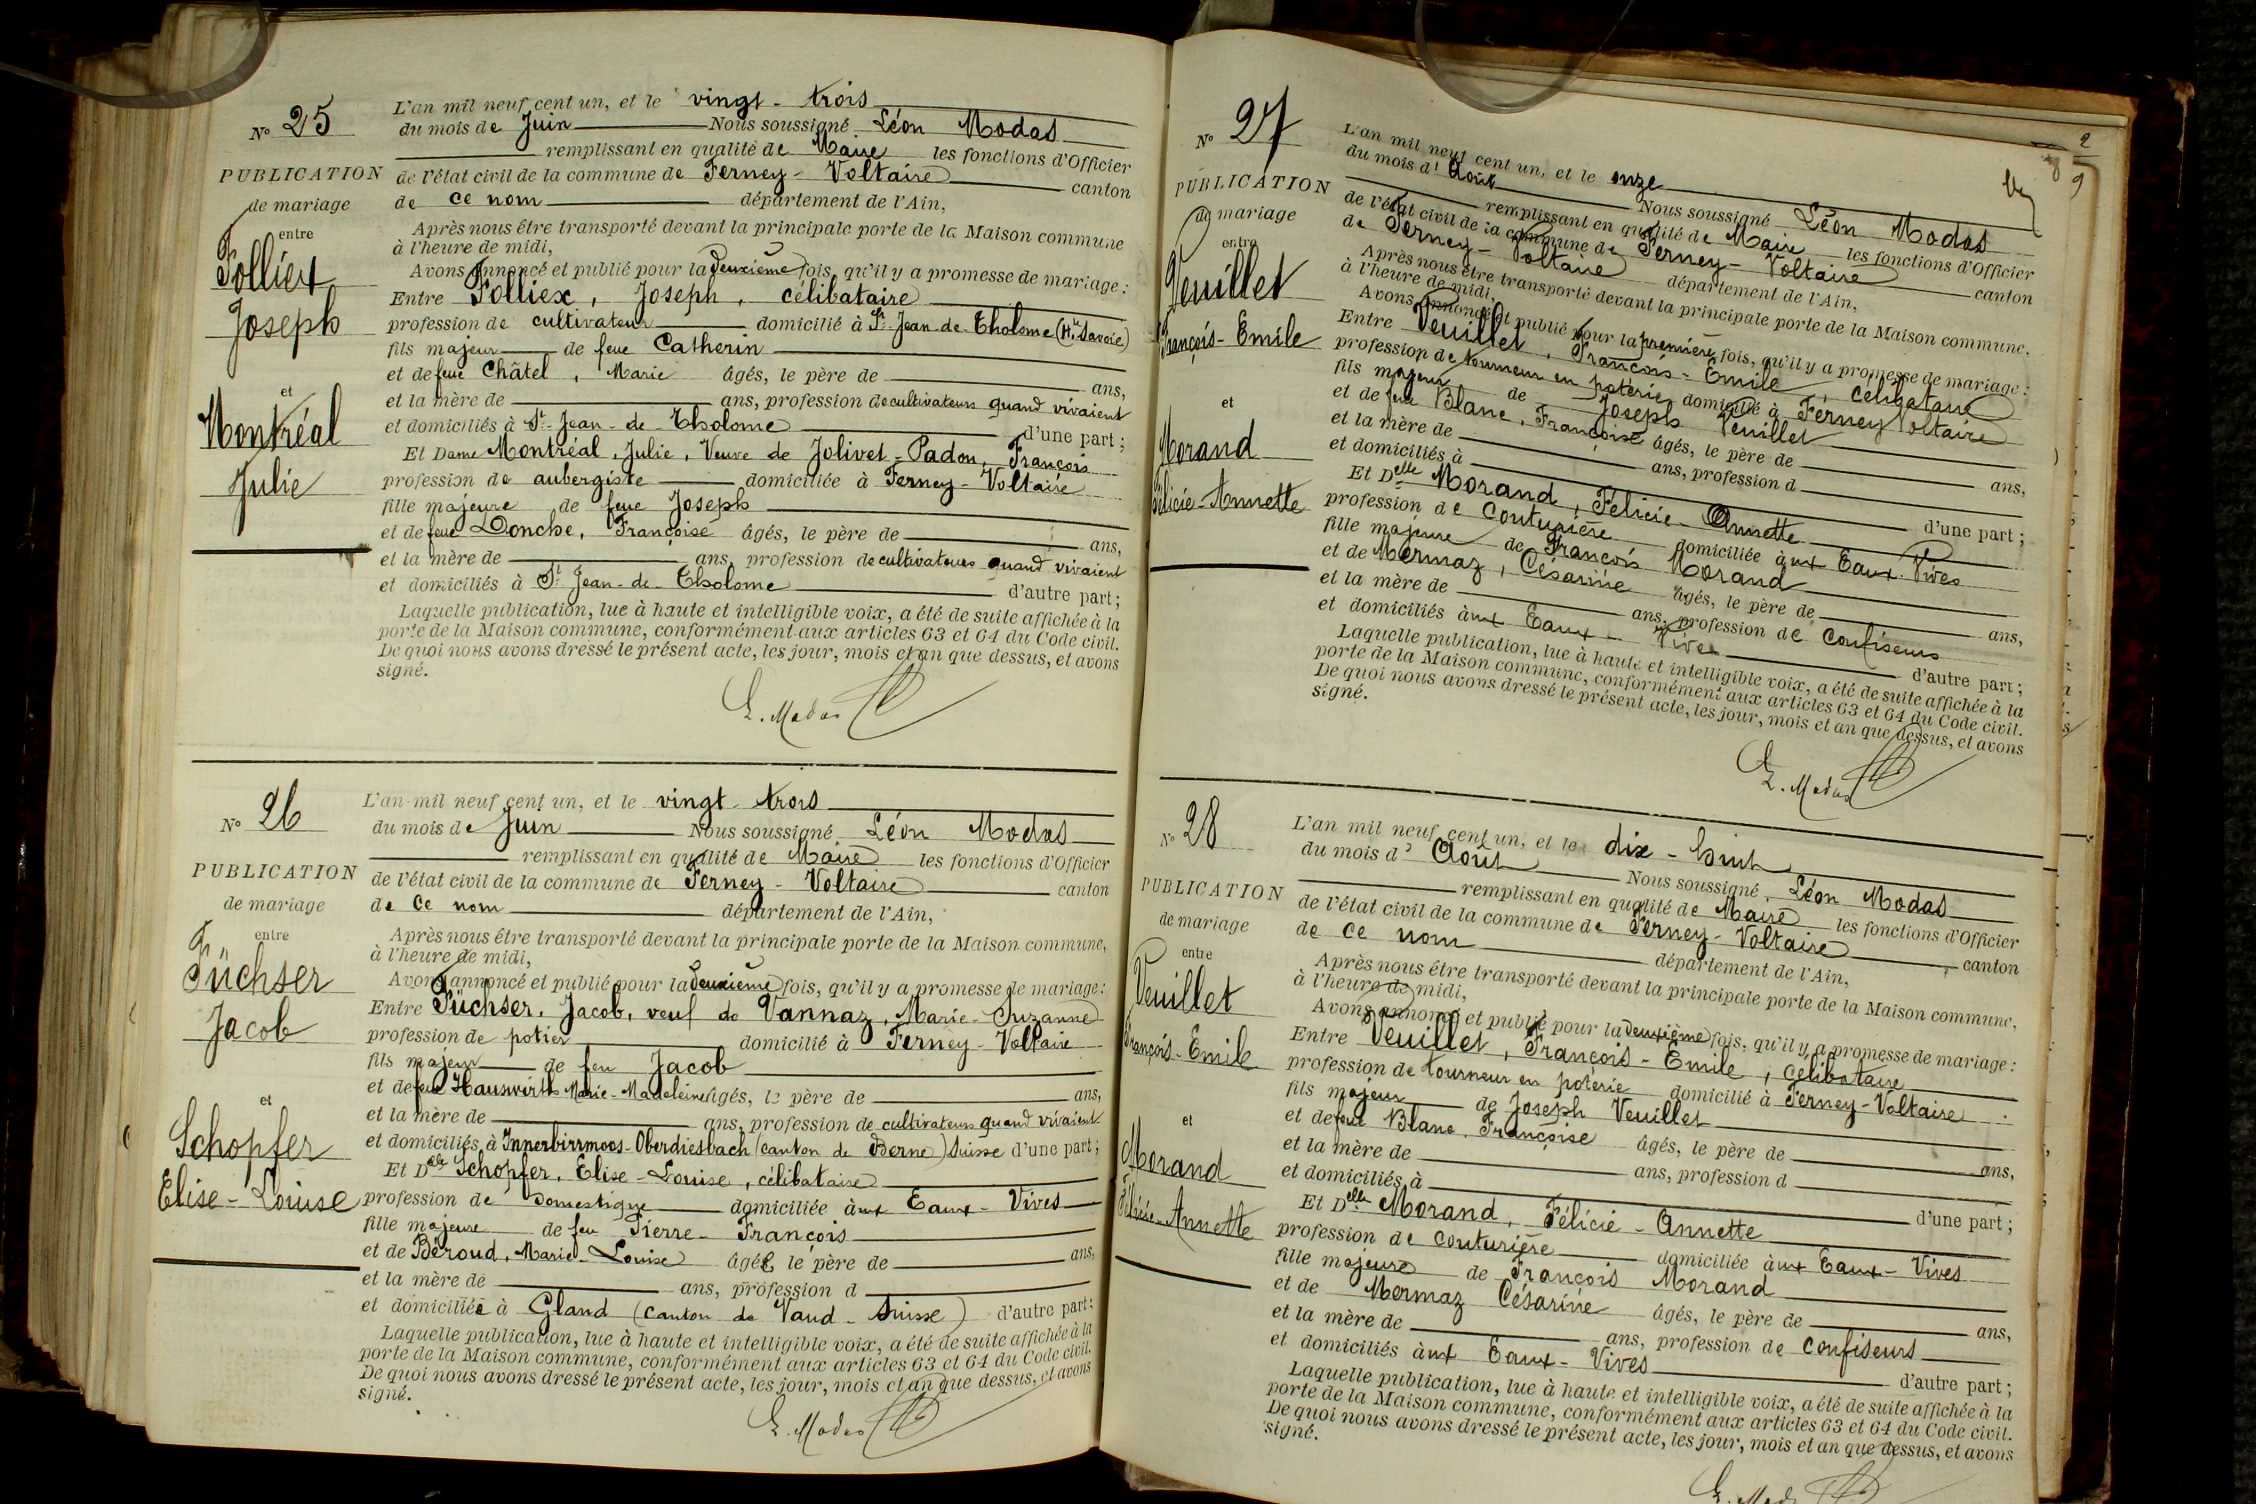 N° 25
PUBLICATION
de mariage
entre
Folliex
Joseph
et
Montréal
Julie
L'an mil neuf cent un, et le vingt-trois
du mois de Juin Nous soussigné Léon Modas
remplissant en qualité de Maire les fonctions d'Officier
de l'état civil de la commune de Ferney-Voltaire canton
de ce nom département de l'Ain,
Après nous être transporté devant la principale porte de la Maison commune
à l'heure de midi,
Avons annoncé et publié pour la deuxième fois, qu'il y a promesse de mariage :
Entre Folliex, Joseph, célibataire
profession de cultivateur domicilié à St-Jean-de-Tholome (Hte Savoie)
fils majeur de feue Catherin
et de feue Châtel, Marie âgés, le père de ans,
et la mère de ans, profession de cultivateurs quand vivaient
et domiciliés à St-Jean-de-Tholome d'une part ;
Et Dame Montréal, Julie, Veuve de Jolivet-Padon, François
profession de aubergiste domiciliée à Ferney-Voltaire
fille majeure de feue Joseph
et de feue Donche, Françoise âgés, le père de ans,
et la mère de ans, profession de cultivateurs quand vivaient
et domiciliés à St Jean-de-Tholome d'autre part ;
Laquelle publication, lue à haute et intelligible voix, a été de suite affichée à la
porte de la Maison commune, conformément aux articles 63 et 64 du Code civil.
De quoi nous avons dressé le présent acte, les jour, mois et an que dessus, et avons
signé.
L. Modas
N° 26
PUBLICATION
de mariage
entre
Füchser
Jacob
et
Schopfer
Elise-Louise
L'an mil neuf cent un, et le vingt-trois
du mois de Juin Nous soussigné Léon Modas
remplissant en qualité de Maire les fonctions d'Officier
de l'état civil de la commune de Ferney-Voltaire canton
de ce nom département de l'Ain,
Après nous être transporté devant la principale porte de la Maison commune,
à l'heure de midi,
Avons annoncé et publié pour la deuxième fois, qu'il y a promesse de mariage :
Entre Füchser, Jacob, veuf de Vannaz, Marie-Suzanne
profession de potier domicilié à Ferney-Voltaire
fils majeur de feu Jacob
et de feue Hauswirth Marie-Madeleine âgés, le père de ans,
et la mère de ans, profession de cultivateurs quand vivaient
et domiciliés à Innerbirrmoos-Oberdiesbach (canton de Berne) Suisse d'une part ;
Et Delle Schopfer, Elise-Louise, célibataire
profession de domestique domiciliée aux Eaux-Vives
fille majeure de feu Pierre-François
et de Béroud, Marie-Louise âgée le père de ans,
et la mère de ans, profession d
et domiciliée à Gland (canton de Vaud-Suisse) d'autre part ;
Laquelle publication, lue à haute et intelligible voix, a été de suite affichée à la
porte de la Maison commune, conformément aux articles 63 et 64 du Code civil.
De quoi nous avons dressé le présent acte, les jour, mois et an que dessus, et avons
signé.
L. Modas
N° 27
PUBLICATION
de mariage
entre
Veuillet
François-Emile
et
Morand
Félicie-Annette
L'an mil neuf cent un, et le onze
du mois d'Août Nous soussigné Léon Modas
remplissant en qualité de Maire les fonctions d'Officier
de l'état civil de la commune de Ferney-Voltaire canton
de Ferney-Voltaire département de l'Ain,
Après nous être transporté devant la principale porte de la Maison commune,
à l'heure de midi,
Avons annoncé et publié pour la première fois, qu'il y a promesse de mariage :
Entre Veuillet, François-Emile, célibataire
profession de tourneur en poterie domicilié à Ferney Voltaire
fils majeur de Joseph Veuillet
et de feue Blanc, Françoise âgés, le père de ans,
et la mère de ans, profession d
et domiciliés à d'une part ;
Et Delle Morand, Félicie-Annette
profession de couturière domiciliée aux Eaux-Vives
fille majeure de François Morand
et de Mermaz, Césarine âgés, le père de ans,
et la mère de ans, profession de confiseurs
et domiciliés aux Eaux-Vives d'autre part ;
Laquelle publication, lue à haute et intelligible voix, a été de suite affichée à la
porte de la Maison commune, conformément aux articles 63 et 64 du Code civil.
De quoi nous avons dressé le présent acte, les jour, mois et an que dessus, et avons
signé.
L. Modas
N° 28
PUBLICATION
de mariage
entre
Veuillet
François-Emile
et
Morand
Félicie-Annette
L'an mil neuf cent un, et le dix-huit
du mois d'Août Nous soussigné Léon Modas
remplissant en qualité de Maire les fonctions d'Officier
de l'état civil de la commune de Ferney-Voltaire canton
de ce nom département de l'Ain,
Après nous être transporté devant la principale porte de la Maison commune,
à l'heure de midi,
Avons annoncé et publié pour la deuxième fois, qu'il y a promesse de mariage :
Entre Veuillet, François-Emile, célibataire
profession de tourneur en poterie domicilié à Ferney-Voltaire
fils majeur de Joseph Veuillet
et de feue Blanc, Françoise âgés, le père de ans,
et la mère de ans, profession d
et domiciliés à d'une part ;
Et Delle Morand, Félicie-Annette
profession de couturière domiciliée aux Eaux-Vives
fille majeure de François Morand
et de Mermaz Césarine âgés, le père de ans,
et la mère de ans, profession de confiseurs
et domiciliés aux Eaux-Vives d'autre part ;
Laquelle publication, lue à haute et intelligible voix, a été de suite affichée à la
porte de la Maison commune, conformément aux articles 63 et 64 du Code civil.
De quoi nous avons dressé le présent acte, les jour, mois et an que dessus, et avons
signé.